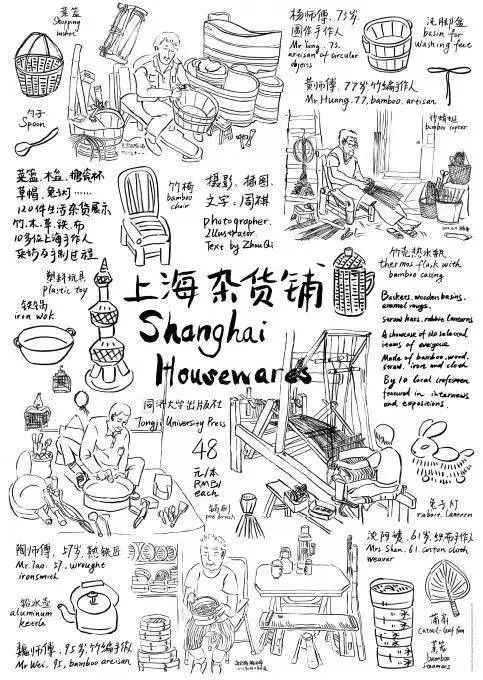 菜篮
Shopping basket
杨师傅，75岁，
圆作手作人
Mr Yang, 75,
artisan of circular
objects
洗脚盆
basin for
washing feet
黄师傅，77岁，竹编手作人
Mr Huang, 77, bamboo artisan
勺子
Spoon
菜篮、木盆、搪瓷杯
草帽、兔子灯……
120件生活杂货展示
竹、木、草、铁、布
10多位上海手作人
采访及手制过程
竹椅
bamboo
chair
摄影、插图、
文字：周祺
photographer
Illustrator
Text by Zhou Qi
竹壳热水瓶
thermos flask with
bamboo casing
塑料玩具
Plastic toy
铁锅
iron wok
上海杂货铺
Shanghai
Housewares
Baskets, wooden basins,
enamel mugs,
straw hats, rabbit lanterns
A showcase of 120 selected
items of everyone
Made of bamboo, wood,
straw, iron and cloth
By 10 local craftsmen
featured in interviews
and expositions
同济大学出版社
Tongji University Press
48
元/本
RMB/
each
锅刷
pot brush
兔子灯
rabbit lantern
陶师傅，57岁，熟铁匠
Mr Tao, 57, wrought
ironsmith
沈阿姨，61岁，织布手作人
Mrs Shen, 61, cotton cloth
weaver
铝水壶
aluminum
kettle
蒲扇
Cattail-leaf fan
蒸笼
bamboo
steamers
魏师傅，95岁，竹编手作人
Mr Wei, 95, bamboo artisan